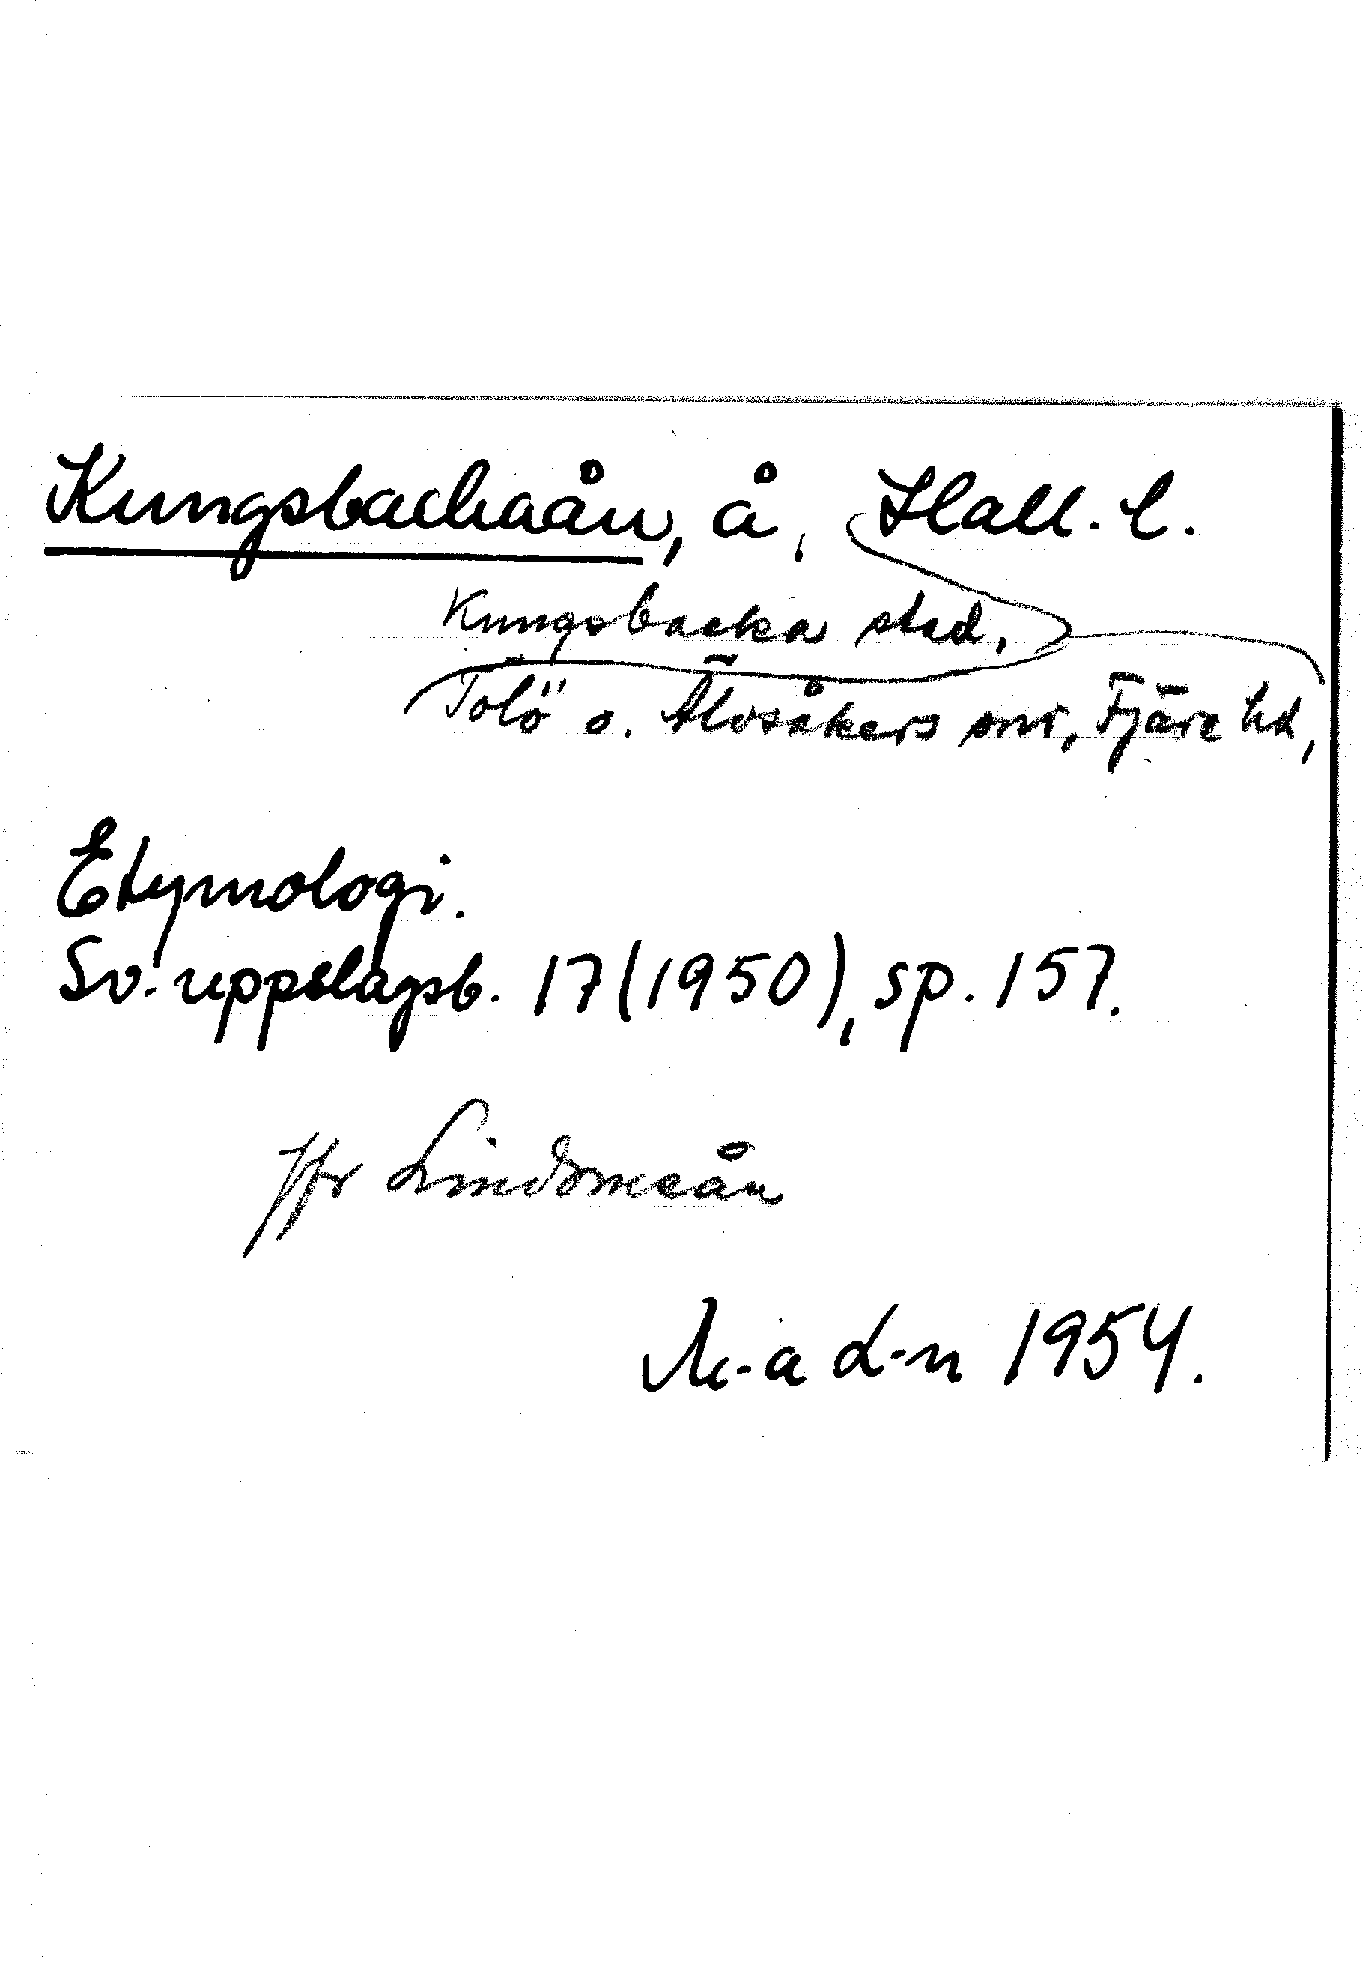 Kungsbackaån, å, Hall. l.
Kungsbacka stad,
Tölö o. Älvsåkers snr, Fjäre hd,
Etymologi.
Sv. uppslagsb. 17 (1950), sp. 157.
Jfr Lindomeån
M-a L-n 1954.